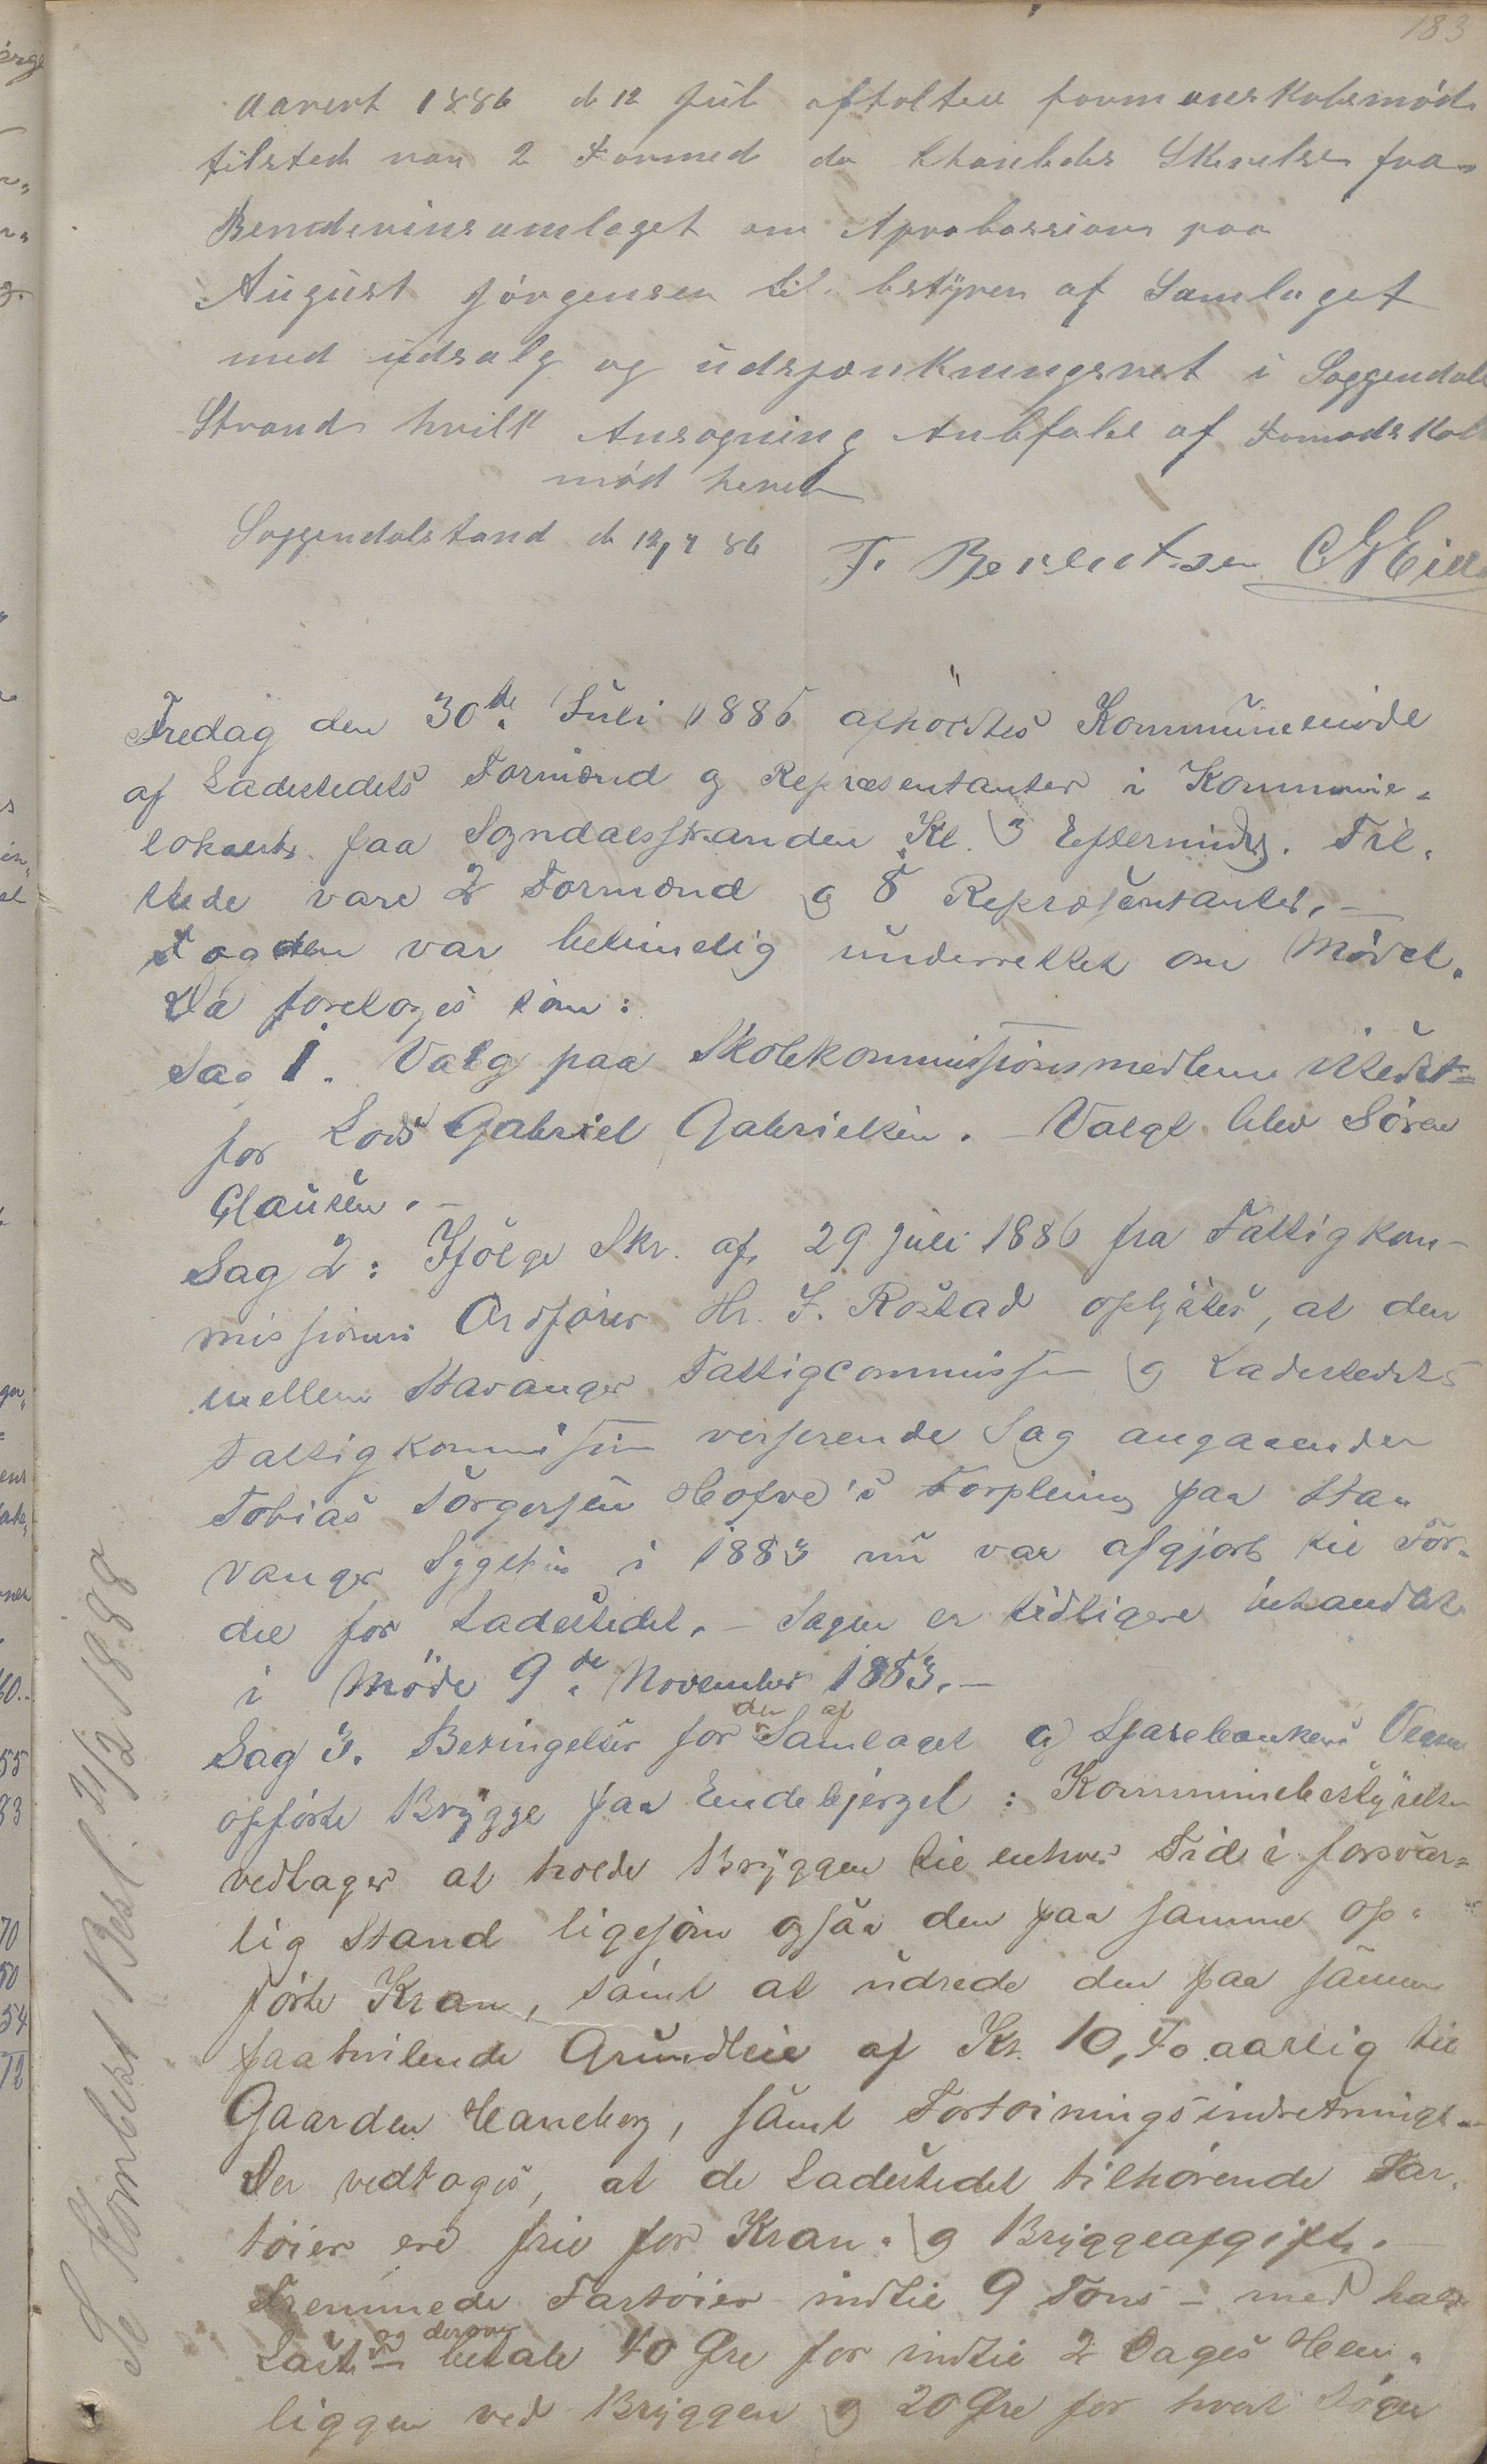 183
aarent 1886 d 12 Juli aftoltes formanskabsmöde
tilsted var 2 Formed da behanledes Skrivelse fra
Brendevinsamlaget om Aprobassion paa
August Jörgensen til bestÿrer af Samlaget
med üdsalg og üdsjænkningsret i Soggendals
Strand hvilk Ansøgning Anbfales af Formandskab
möd heved
Soggendalstand d 12/7 86 F. Berentsen
Fredag den 30te Juli 1886 afholdtes Kommünemøde
af Ladestedets Formænd og Repræsentanter i Kommune-
lokalet paa Sogndalsstranden Kl. 3 Eftermidg. Til-
stede vare 2 Formænd og 5 Repræsentanter. —
Fogden var betimelig ünderrettet om Mødet.
Da foretoges som:
Sag 1. Valg paa Skolekommissionsmedlem istedet=
for Lods Gabriel Gabrielsen. — Valgt blev Søren
Claüsen. —
Sag 2: Ifølge Skr. af 29 Juli 1886 fra Fattigkom-
missionens Ordfører Hr. F. Rostad oplystes, at den
mellem Stavanger Fattigcommission og Ladestedets
Fattigkommission verserende Sag angaaende
Tobias Torgersen Hofve's Forpleining paa Sta-
vanger Sygehus i 1883 nü var afgjort til For-
del for Ladestedet. — Sagen er tidligere behandlet
i Møde 9de November 1883. —
Sag 3. Betingelser for den af Samlaget og Sparebankens
opførte Brÿgge paa Endebjerget: Kommünebestÿrelsen
vedtager at holde Brÿggen til enhver Tid i forsvar-
lig Stand ligesom ogsaa den paa samme op-
førte Kran, samt at üdrede den paa samme
paahvilende Gründleie af Kr. 10,40 aarlig til
Gaarden Haneberg, samt Fortøiningsindretninger.
Der vedtoges, at de Ladestedet tilhørende Far-
tøier ere frie for Kran- og Brÿggeafgift. —
Fremmede Fartøier indtil 9 Tons — med halv
Last og derover — betale 40 Øre for indtil 2 Dages Hen-
liggen ved Brÿggen og 20 Øre for hvert Døgn
Se Kombest Besl. 21/2 1888